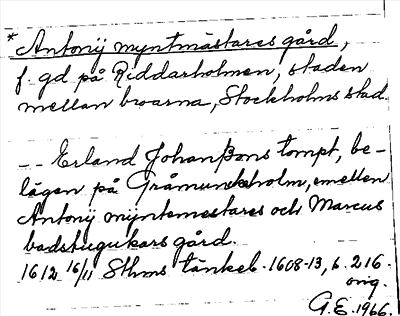 *Antonij myntmästares gård,
f. gd på Riddarholmen, staden
mellan broarna, Stockholms stad.
-- Erland Johanßons tompt, be-
lägen på Gråmunckeholm, emellen
Antonij myntemestares och Marcus
badstugukars gård.
1612 16/11 Sthms tänkeb. 1608-13, s. 216.
orig.
G.E. 1966.